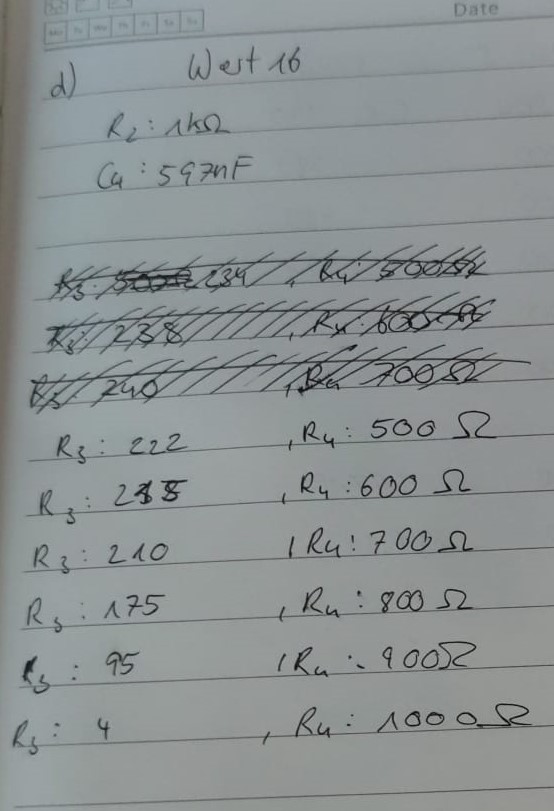 Date
d) Wert 16
R₂ : 1kΩ
C₄ : 597nF
R₃ : 234 , R₄ : 500Ω
R₃ : 238 , R₄ : 600Ω
R₃ : 240 , R₄ 700Ω
R₃ : 222 , R₄ : 500 Ω
R₃ : , R₄ : 600 Ω
R₃ : 210 , R₄ : 700Ω
R₃ : 175 , R₄ : 800Ω
R₃ : 95 , R₄ : 900Ω
R₃ : 4 , R₄ : 1000Ω